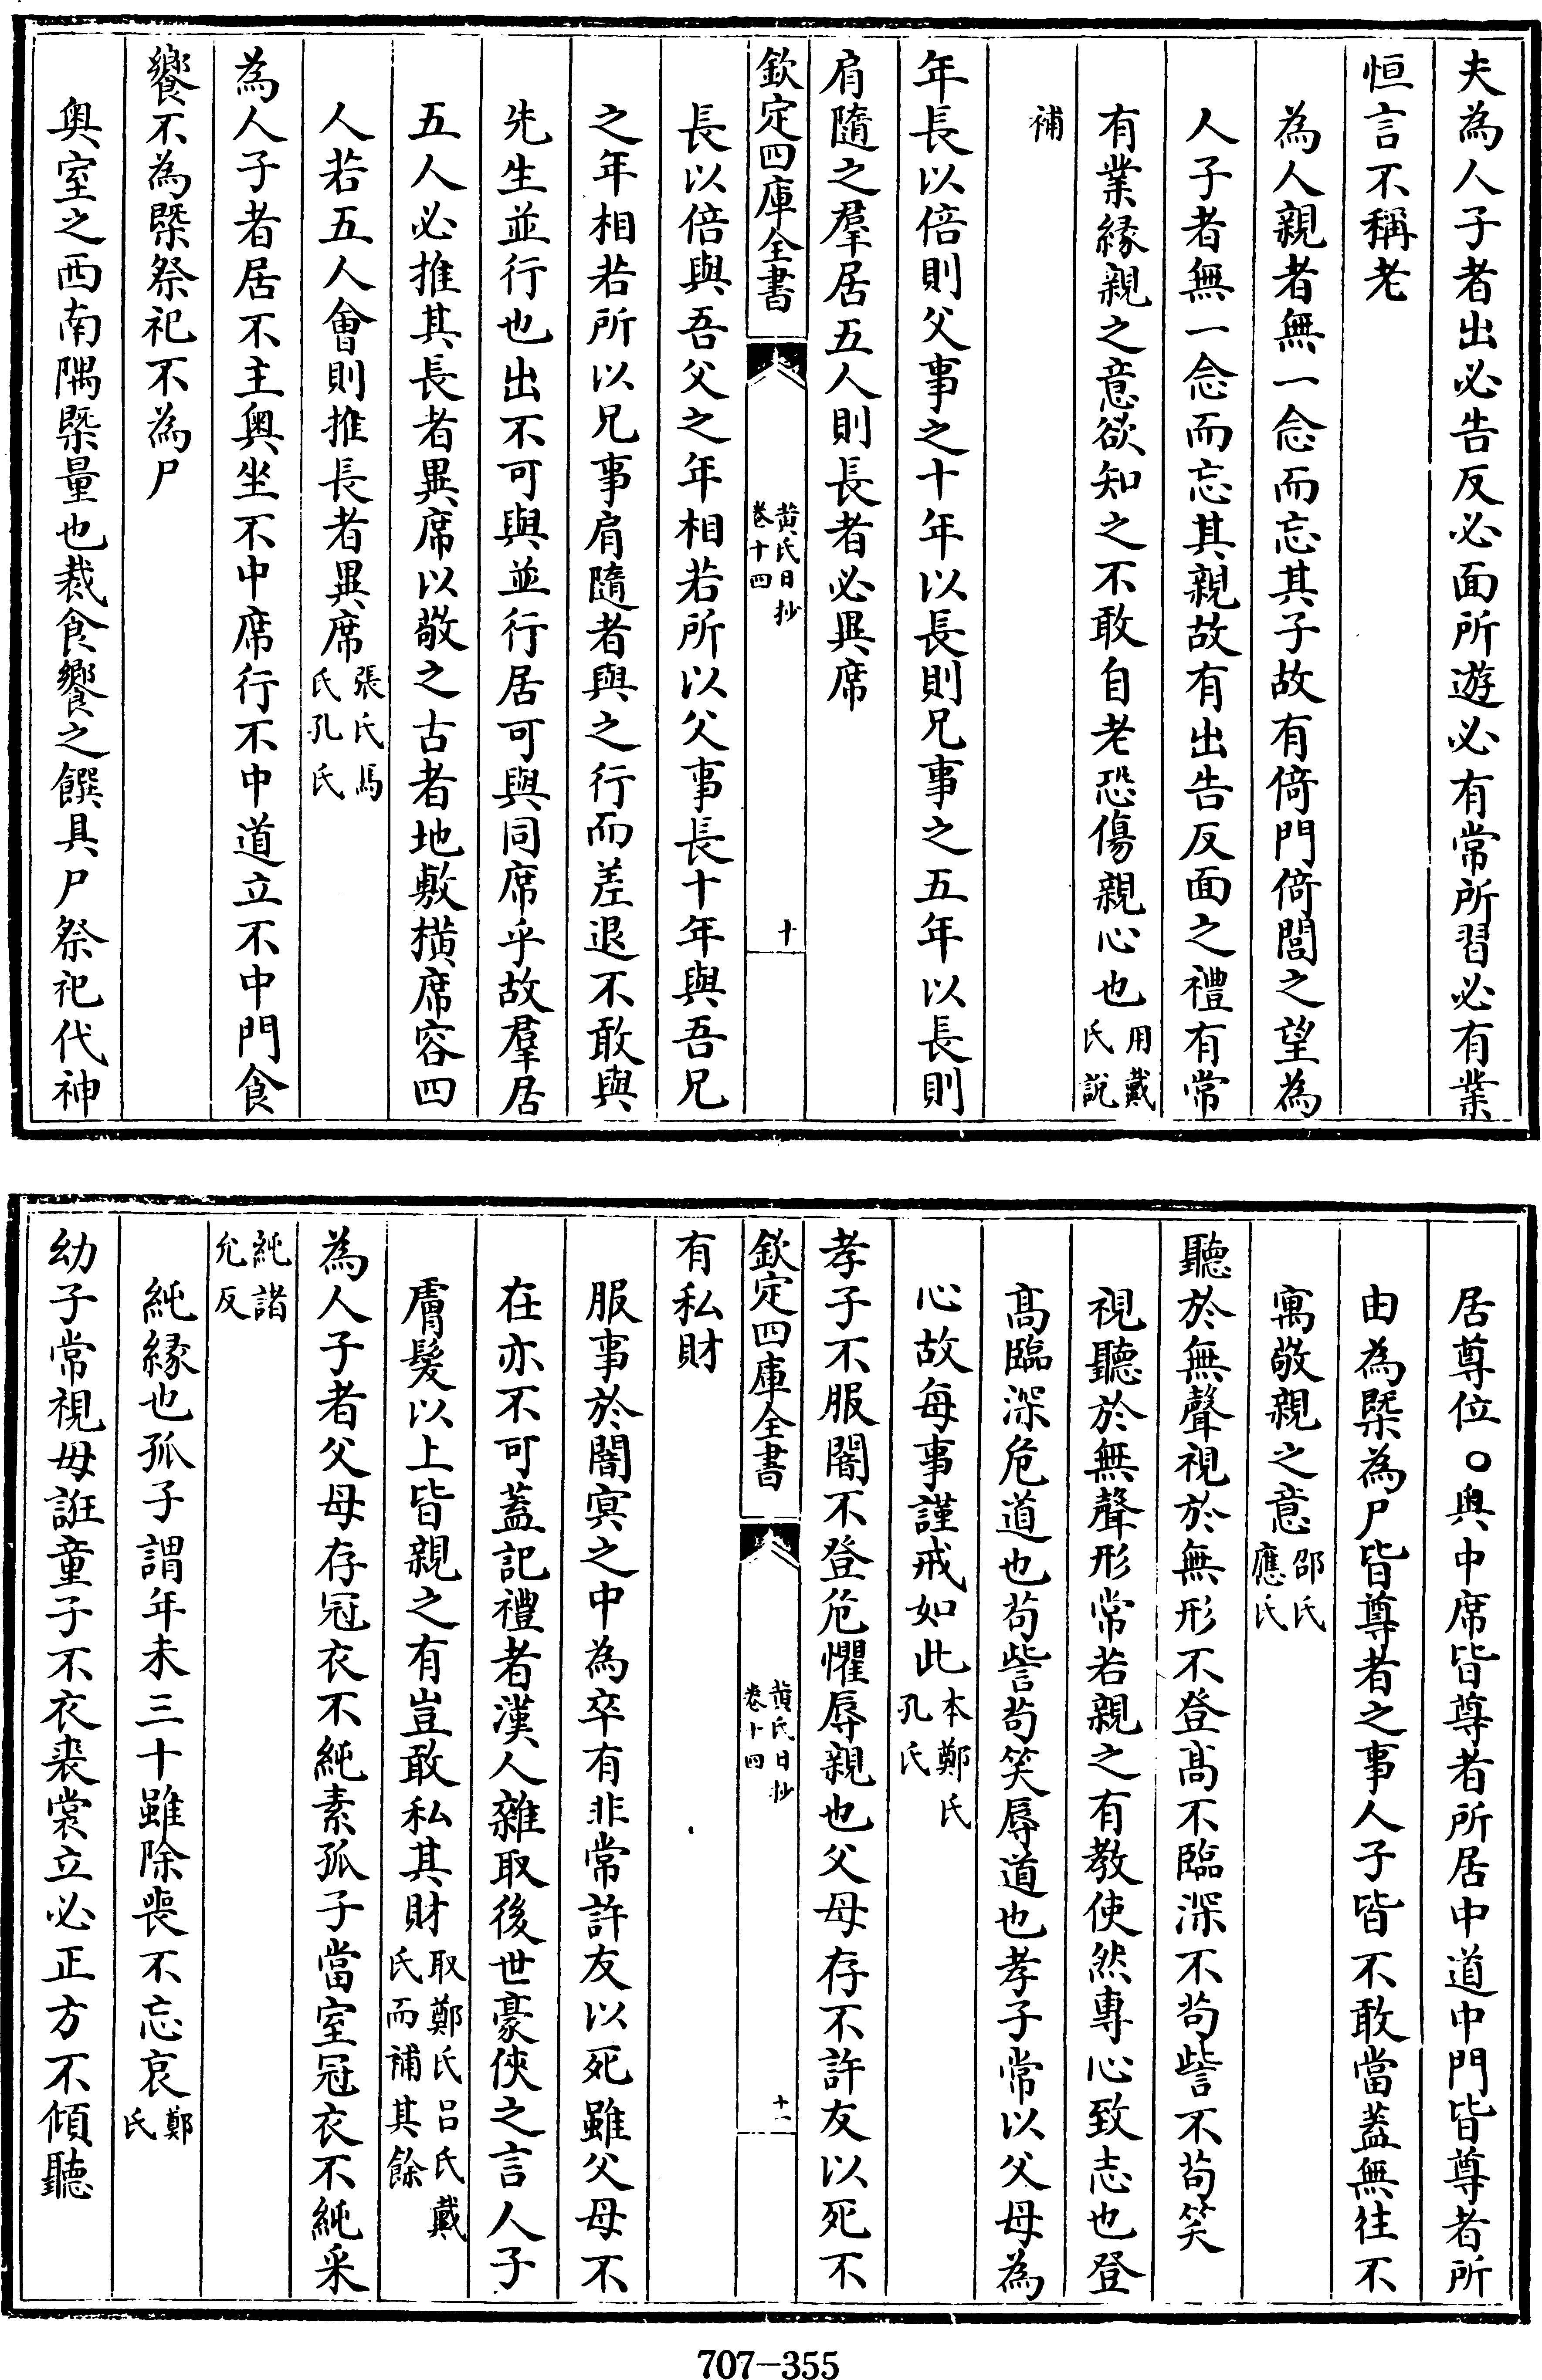 夫為人子者出必告反必面所遊必有常所習必有業
恒言不稱老
為人親者無一念而忘其子故有倚門倚閭之望為
人子者無一念而忘其親故有出告反面之禮有常
有業緣親之意欲知之不敢自老恐傷親心也用戴氏說
補
年長以倍則父事之十年以長則兄事之五年以長則
肩隨之羣居五人則長者必異席
欽定四庫全書 黃氏日抄 卷十四 十
長以倍與吾父之年相若所以父事長十年與吾兄
之年相若所以兄事肩隨者與之行而差退不敢與
先生並行也出不可與並行居可與同席乎故羣居
五人必推其長者異席以敬之古者地敷橫席容四
人若五人會則推長者異席張氏馬氏孔氏
為人子者居不主奧坐不中席行不中道立不中門食
饗不為槩祭祀不為尸
奧室之西南隅槩量也裁食饗之饌具尸祭祀代神
居尊位○奥中席皆尊者所居中道中門皆尊者所
由為槩為尸皆尊者之事人子皆不敢當蓋無往不
寓敬親之意邵氏應氏
聽於無聲視於無形不登髙不臨深不茍訾不茍笑
視聽於無聲形常若親之有教使然專心致志也登
髙臨深危道也茍訾茍笑辱道也孝子常以父母為
心故每事謹戒如此本鄭氏孔氏
孝子不服闇不登危懼辱親也父母存不許友以死不
欽定四庫全書 黃氏日抄 卷十四 十一
有私財
服事於闇冥之中為卒有非常許友以死雖父母不
在亦不可蓋記禮者漢人雜取後世豪俠之言人子
膚髮以上皆親之有豈敢私其財取鄭氏呂氏戴氏而補其餘
為人子者父母存冠衣不純素孤子當室冠衣不純采
純諸允反
純緣也孤子謂年未三十雖除喪不忘哀鄭氏
幼子常視毋誑童子不衣裘裳立必正方不傾聽
707-355